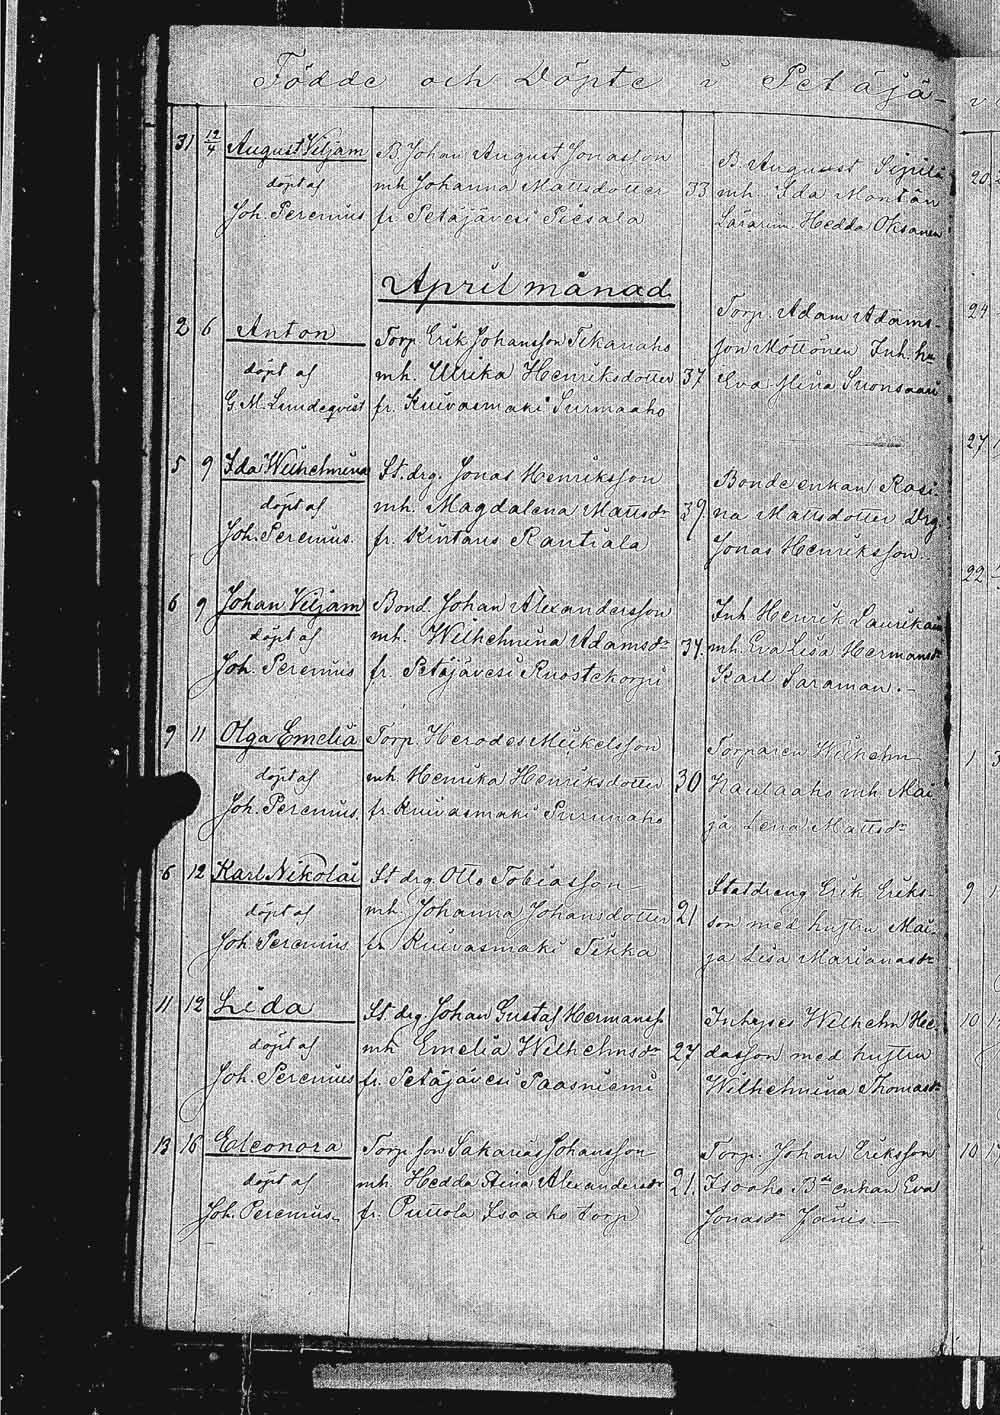 Födde och Döpte i Petäjä-
31 12/4 August Viljam B. Johan August Jonasson B. August Sipilä
döpt af mh Johanna Mattsdotter 33 mh Ida Montân
Joh. Perenius fr Petäjävesi Piesala Lärarin. Hedda Oksanen
April månad.
2 6 Anton Torp. Erik Johansson Tikanaho Torp. Adam Adams-
döpt af mh. Ulrika Henriksdotter 37 son Möttönen Inh. hu
G. M. Lundeqvist fr. Kuivasmäki Surmaaho Eva Stina Suonsaari
5 9 Ida Wilhelmina St. drg. Jonas Henriksson Bonde enkan Rosi-
döpt af mh. Magdalena Mattsdr 39. na Mattsdotter Drg
Joh. Perenius. fr. Kintaus Rantiala Jonas Henriksson.
6 9 Johan Viljam Bond. Johan Alexandersson Inh Henrik Laurikain
döpt af mh. Wilhelmina Adamsdr 34. mh. Eva Lisa Hermansdr
Joh. Perenius fr. Petäjävesi Ruostekorpi Karl Saraman.-
9 11 Olga Emelia Torp. Herodes Mikelsson Torparen Wilhelm
döpt af mh Henrika Henriksdotter 30 Kautaaho mh Mai
Joh. Perenius. fr. Kuivasmäki Surmaaho ja Lena Mattsdr
6 12 Karl Nikolai St drg. Otto Tobiasson Statdreng Erik Eriks-
döpt af mh. Johanna Johansdotter 21 son med hustru Mai-
Joh. Perenius fr Kuivasmäki Tikka ja Lisa Mariansdr
11 12 Lida St. drg. Johan Gustaf Hermanss Inhyses Wilhelm He-
döpt af mh Emelia Wilhelmsdr 27 dasson med hustru
Joh. Perenius fr. Petäjävesi Paasniemi Wilhelmina Thomasdr
13 16 Eleonora Torp. son Sakarias Johansson Torp. Johan Eriksson
döpt af mh. Hedda Stina Alexandersdr 21. Isoaho Bde enkan Eva
Joh. Perenius. fr. Puttola Isoaho torp Jonasdr Jänis.-
20
24
27
22
1
9
10
10